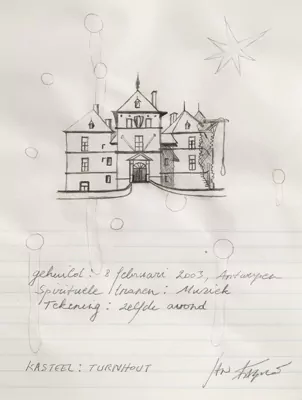 gehuild: 8 februari 2003, Antwerpen
Spirituele tranen: Muziek
Tekening: zelfde avond
KASTEEL: TURNHOUT